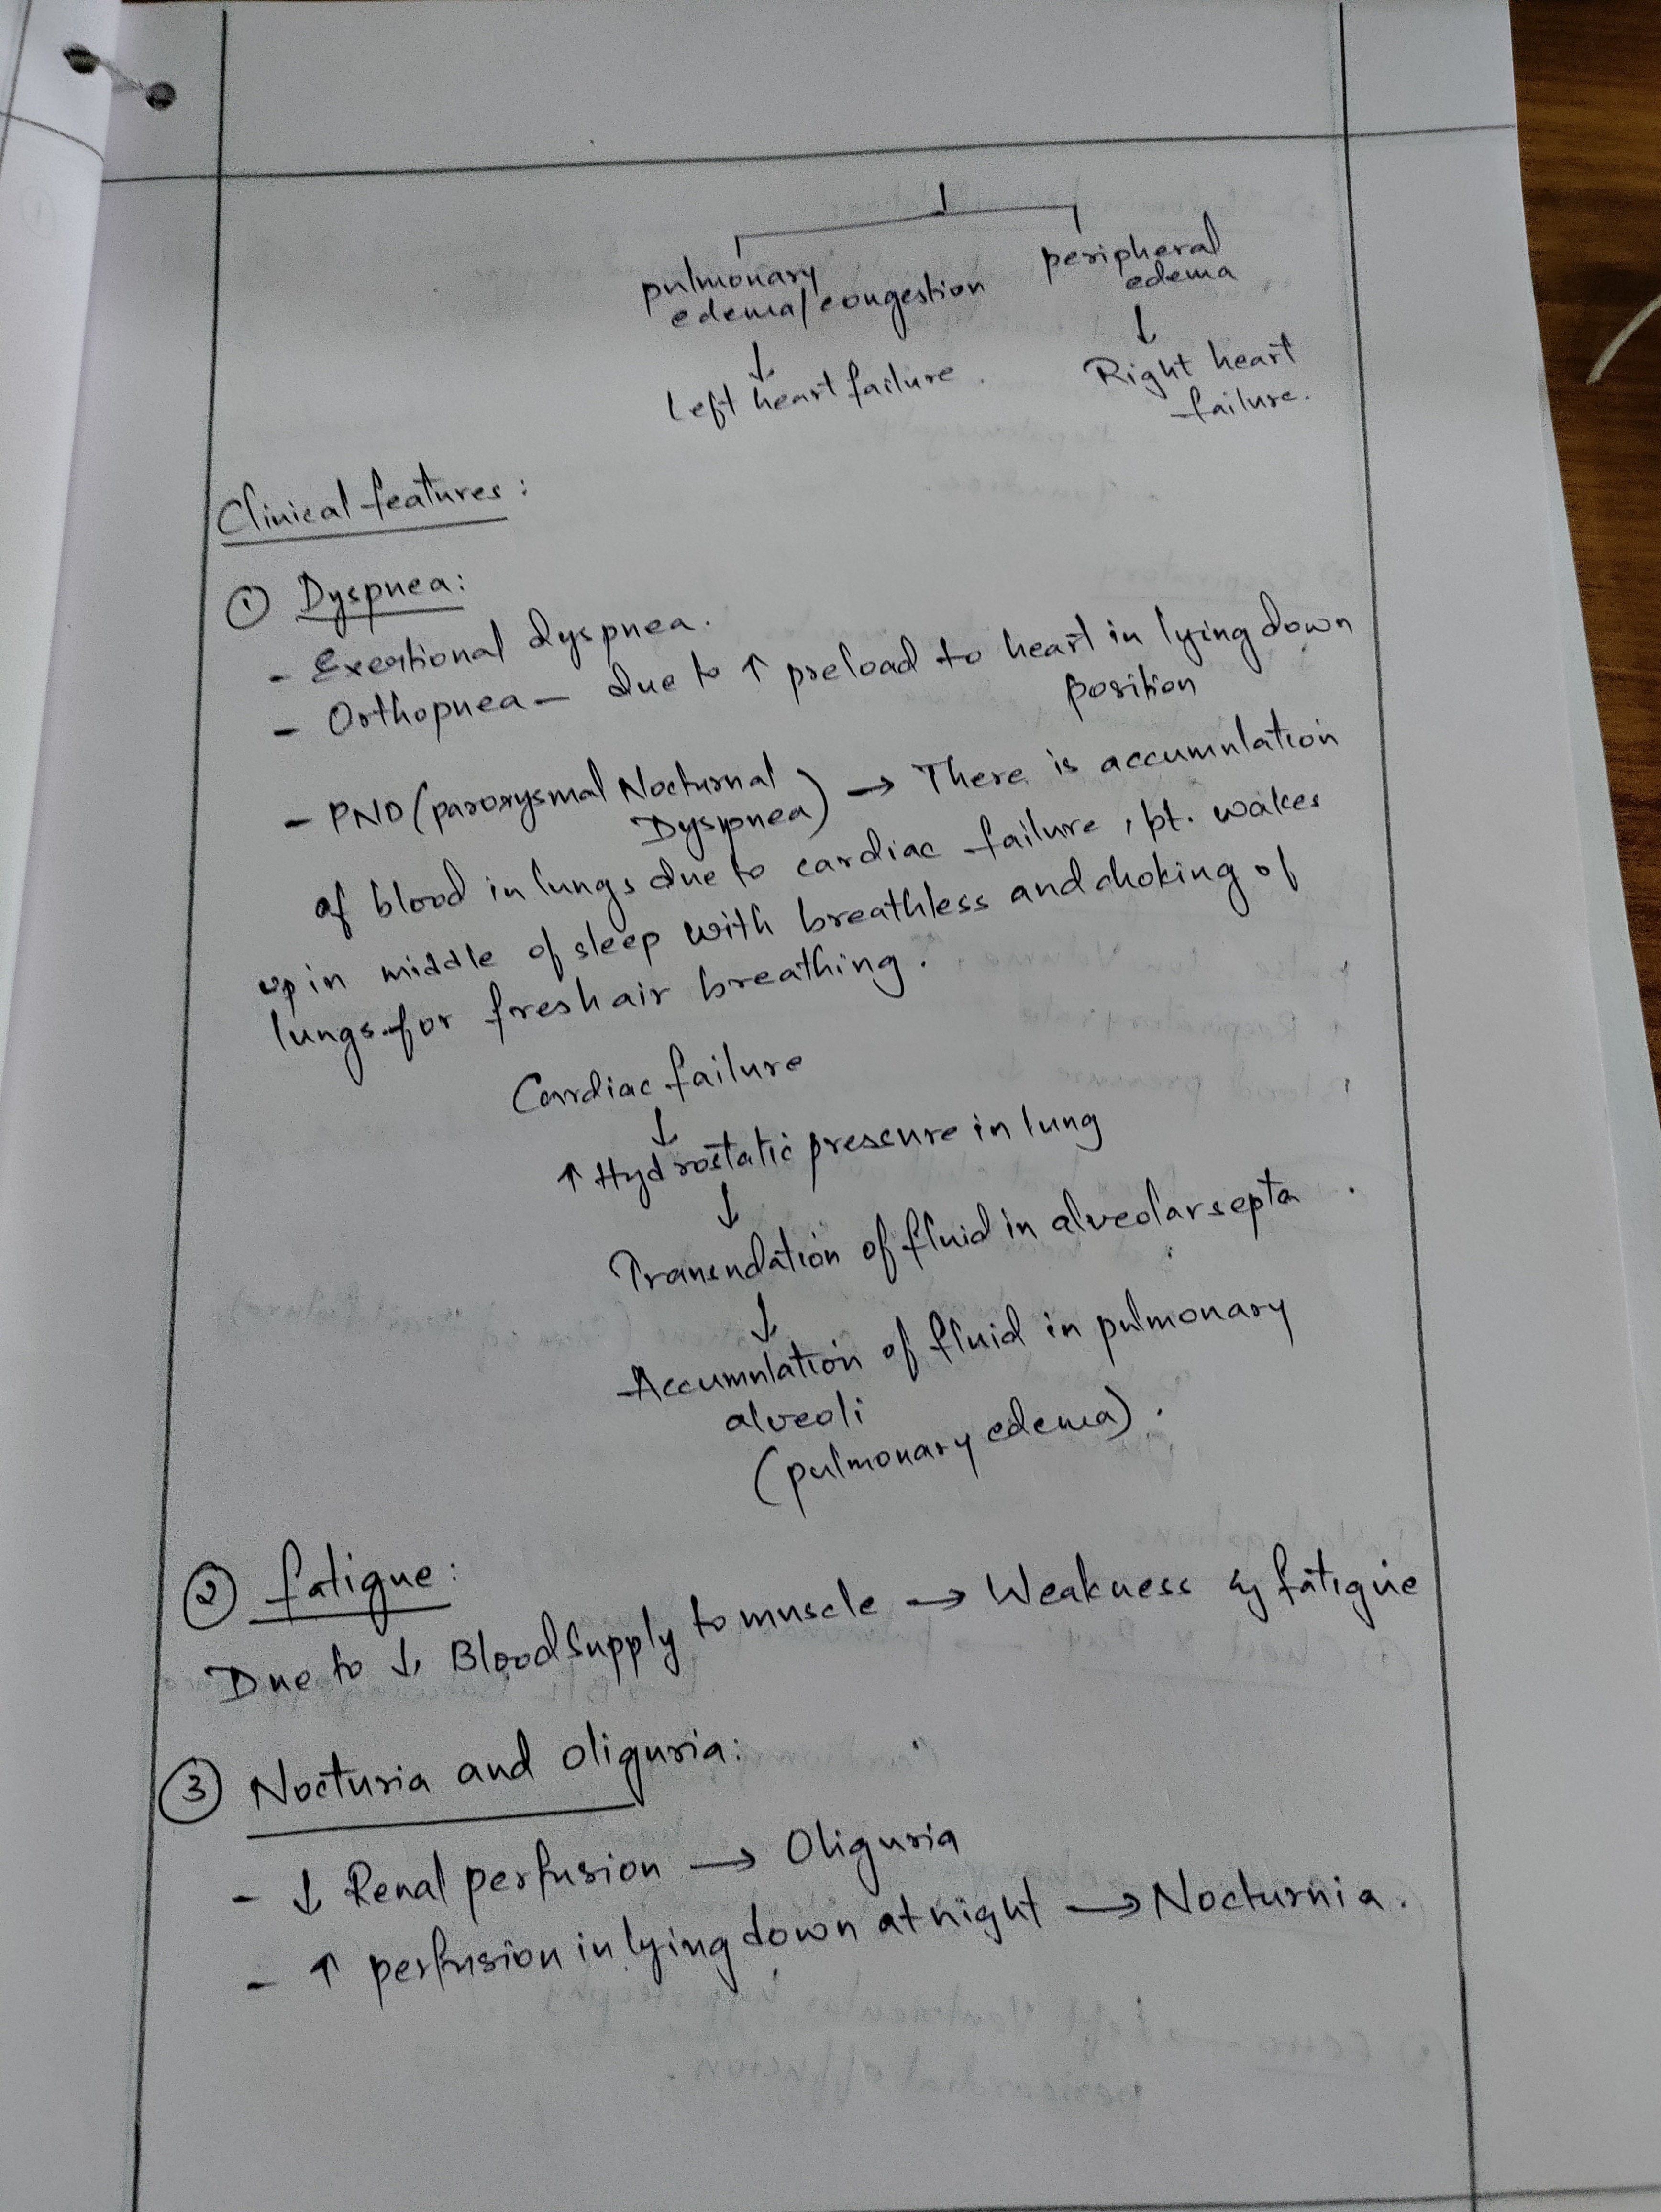 ↓
pulmonary
edema/congestion
peripheral
edema
↓
↓
Left heart failure.
Right heart
failure.
Clinical features:
① Dyspnea:
- Exertional dyspnea.
- Orthopnea - due to ↑ preload to heart in lying down
position
- PND (paroxysmal Nocturnal
Dyspnea) → There is accumulation
of blood in lungs due to cardiac failure, pt. wakes
up in middle of sleep with breathless and choking of
lungs for fresh air breathing.
Cardiac failure
↓
↑ Hydrostatic pressure in lung
↓
Transudation of fluid in alveolar septa.
↓
Accumulation of fluid in pulmonary
alveoli
(pulmonary edema).
② fatigue:
Due to ↓ Blood Supply to muscle → Weakness & fatigue
③ Nocturia and oliguria:
- ↓ Renal perfusion → Oliguria
- ↑ perfusion in lying down at night → Nocturnia.